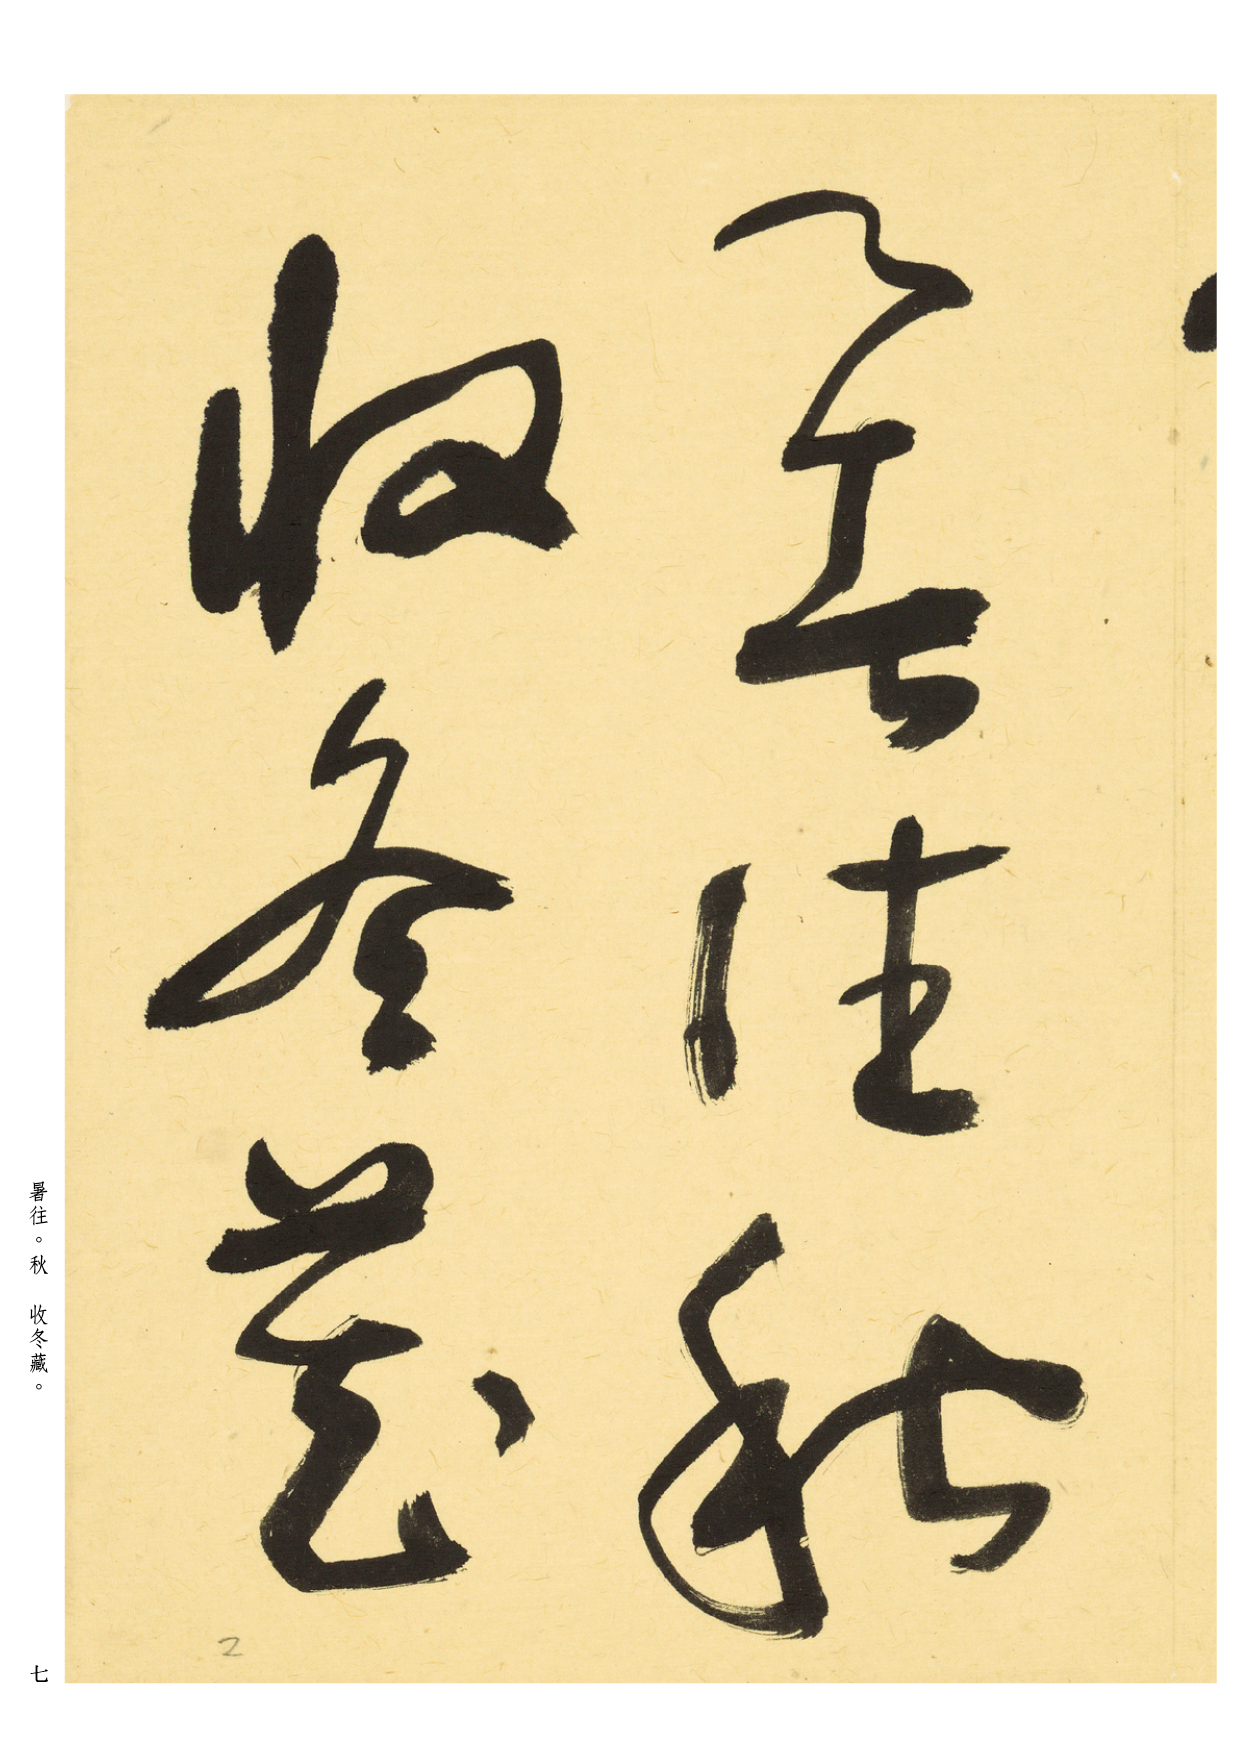 暑往秋
收冬藏
暑往。秋　收冬藏。
七
2